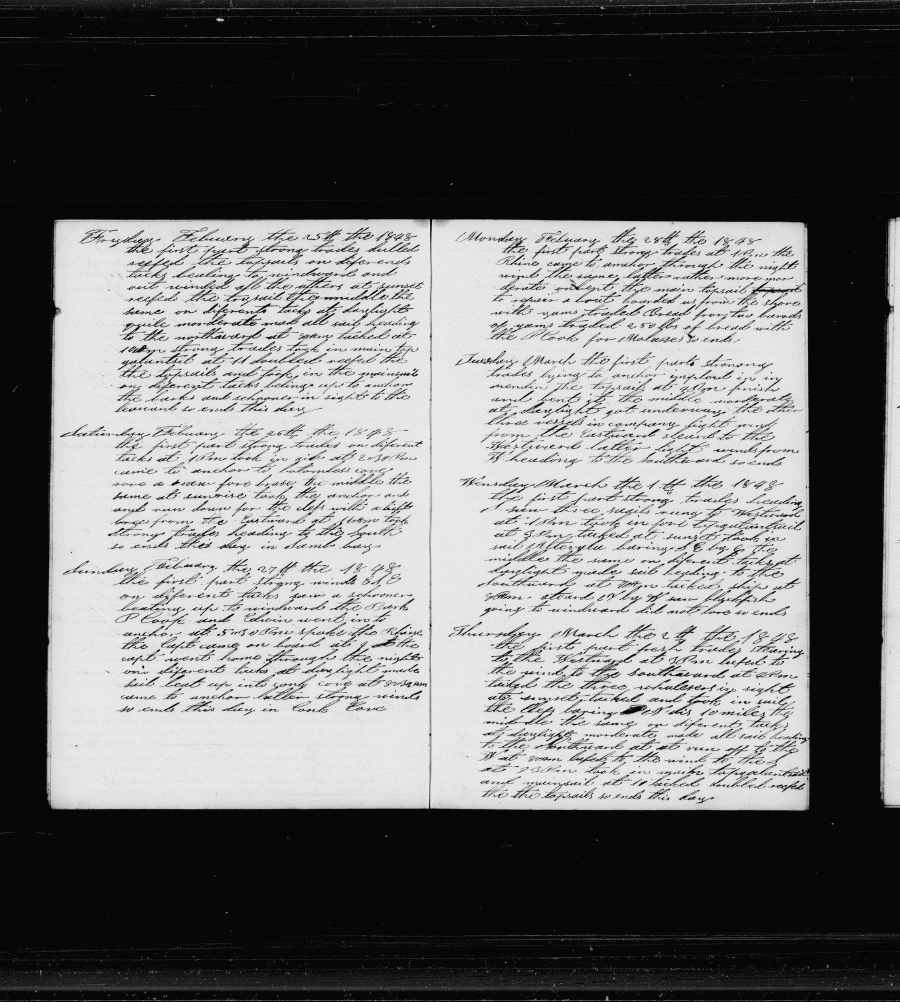 Fryday Febuary the 25th the 1848
the first part strong trades dubled
reefed the topsails on diferends
tacks beating to windward and
out winded all the others at sunset
reefed the topsail the middle the
same on diferents tacks at daylight
quite morderate mad all sail heading
to the northward at tacked at
10 am strong trades took in main top
galantsail at 11 doubled reefed the
the topsails and took in the mainsail
on diferent tacks beting up to anchor
the barks and schooner in sight to the
leeward so ends this day
Saturday Febuary the 26th the 1848
the first part strong trades on different
tacks at 1 Pm took in gib at 2=30 Pm
came to anchor to cove
rove a new fore brase the middle the
same at sunrise took the anchor and
and run down for the with a light
from the Eastward at took
strong trades heading to the South
so ends this day in bay
Sunday Febuary the 27th the 1848
the first part strong winds
on different tacks saw a schooner
beating up to windward the Bark
P Cook and Edwin went in to
anchor at 5=30 Pm spoke the Rhine
the Capt came on board at the
capt went home through the night
on diferent tacks at daylight made
sail beat up into cove at
came to anchor latter strong winds
so ends this day in Cove
Monday Febuary the 28th the 1848
the first part strong trades at 1 Pm the
Rhine came to anchor through the night
wind the same latter rather more mor
derate the main topsail
to repair a boat boarded us from the shore
with yams traded Bread for two barrels
of yams traded 250 lbs of bread with
the P Cook for Molasses so ends.
Tuesday March the first parts
trades lying to anchor imploid in
mendin the topsails at 4 Pm finish
and bent it the middle morderate
at daylight got underway the other
three vessels in company light wind
from the Eastward steard to the
Westward latter light winds from
W heading to the southward so ends
Wensday March the 1th the 1848
the first part strong trades heading
saw three sails to Westward
at 1 Pm took in fore topgalantsail
at 3 Pm tacked at sunset took in
sail baring S E by E the
middle the same on diferent tacks at
daylight made sail heading to the
Southward at tacked ship at
steard W by saw blackfish
going to windward did not lore so ends
Thursday March the 2th the 1848
the first part fresh trades stearing
to the Westward at 3 Pm lufed to
the wind to the southward at 4 Pm
the three whalesers in sight
at sunset tacked and took in sail
the baring dis 10 miles the
middle the same on diferents tacks
at daylight morderate made all sail heading
to the Southward at run off to the
W at lufed to the wind to the S
at took in main topgalantsail
and mainsail at 10 tacked doubled reefed
the the topsails so ends this day